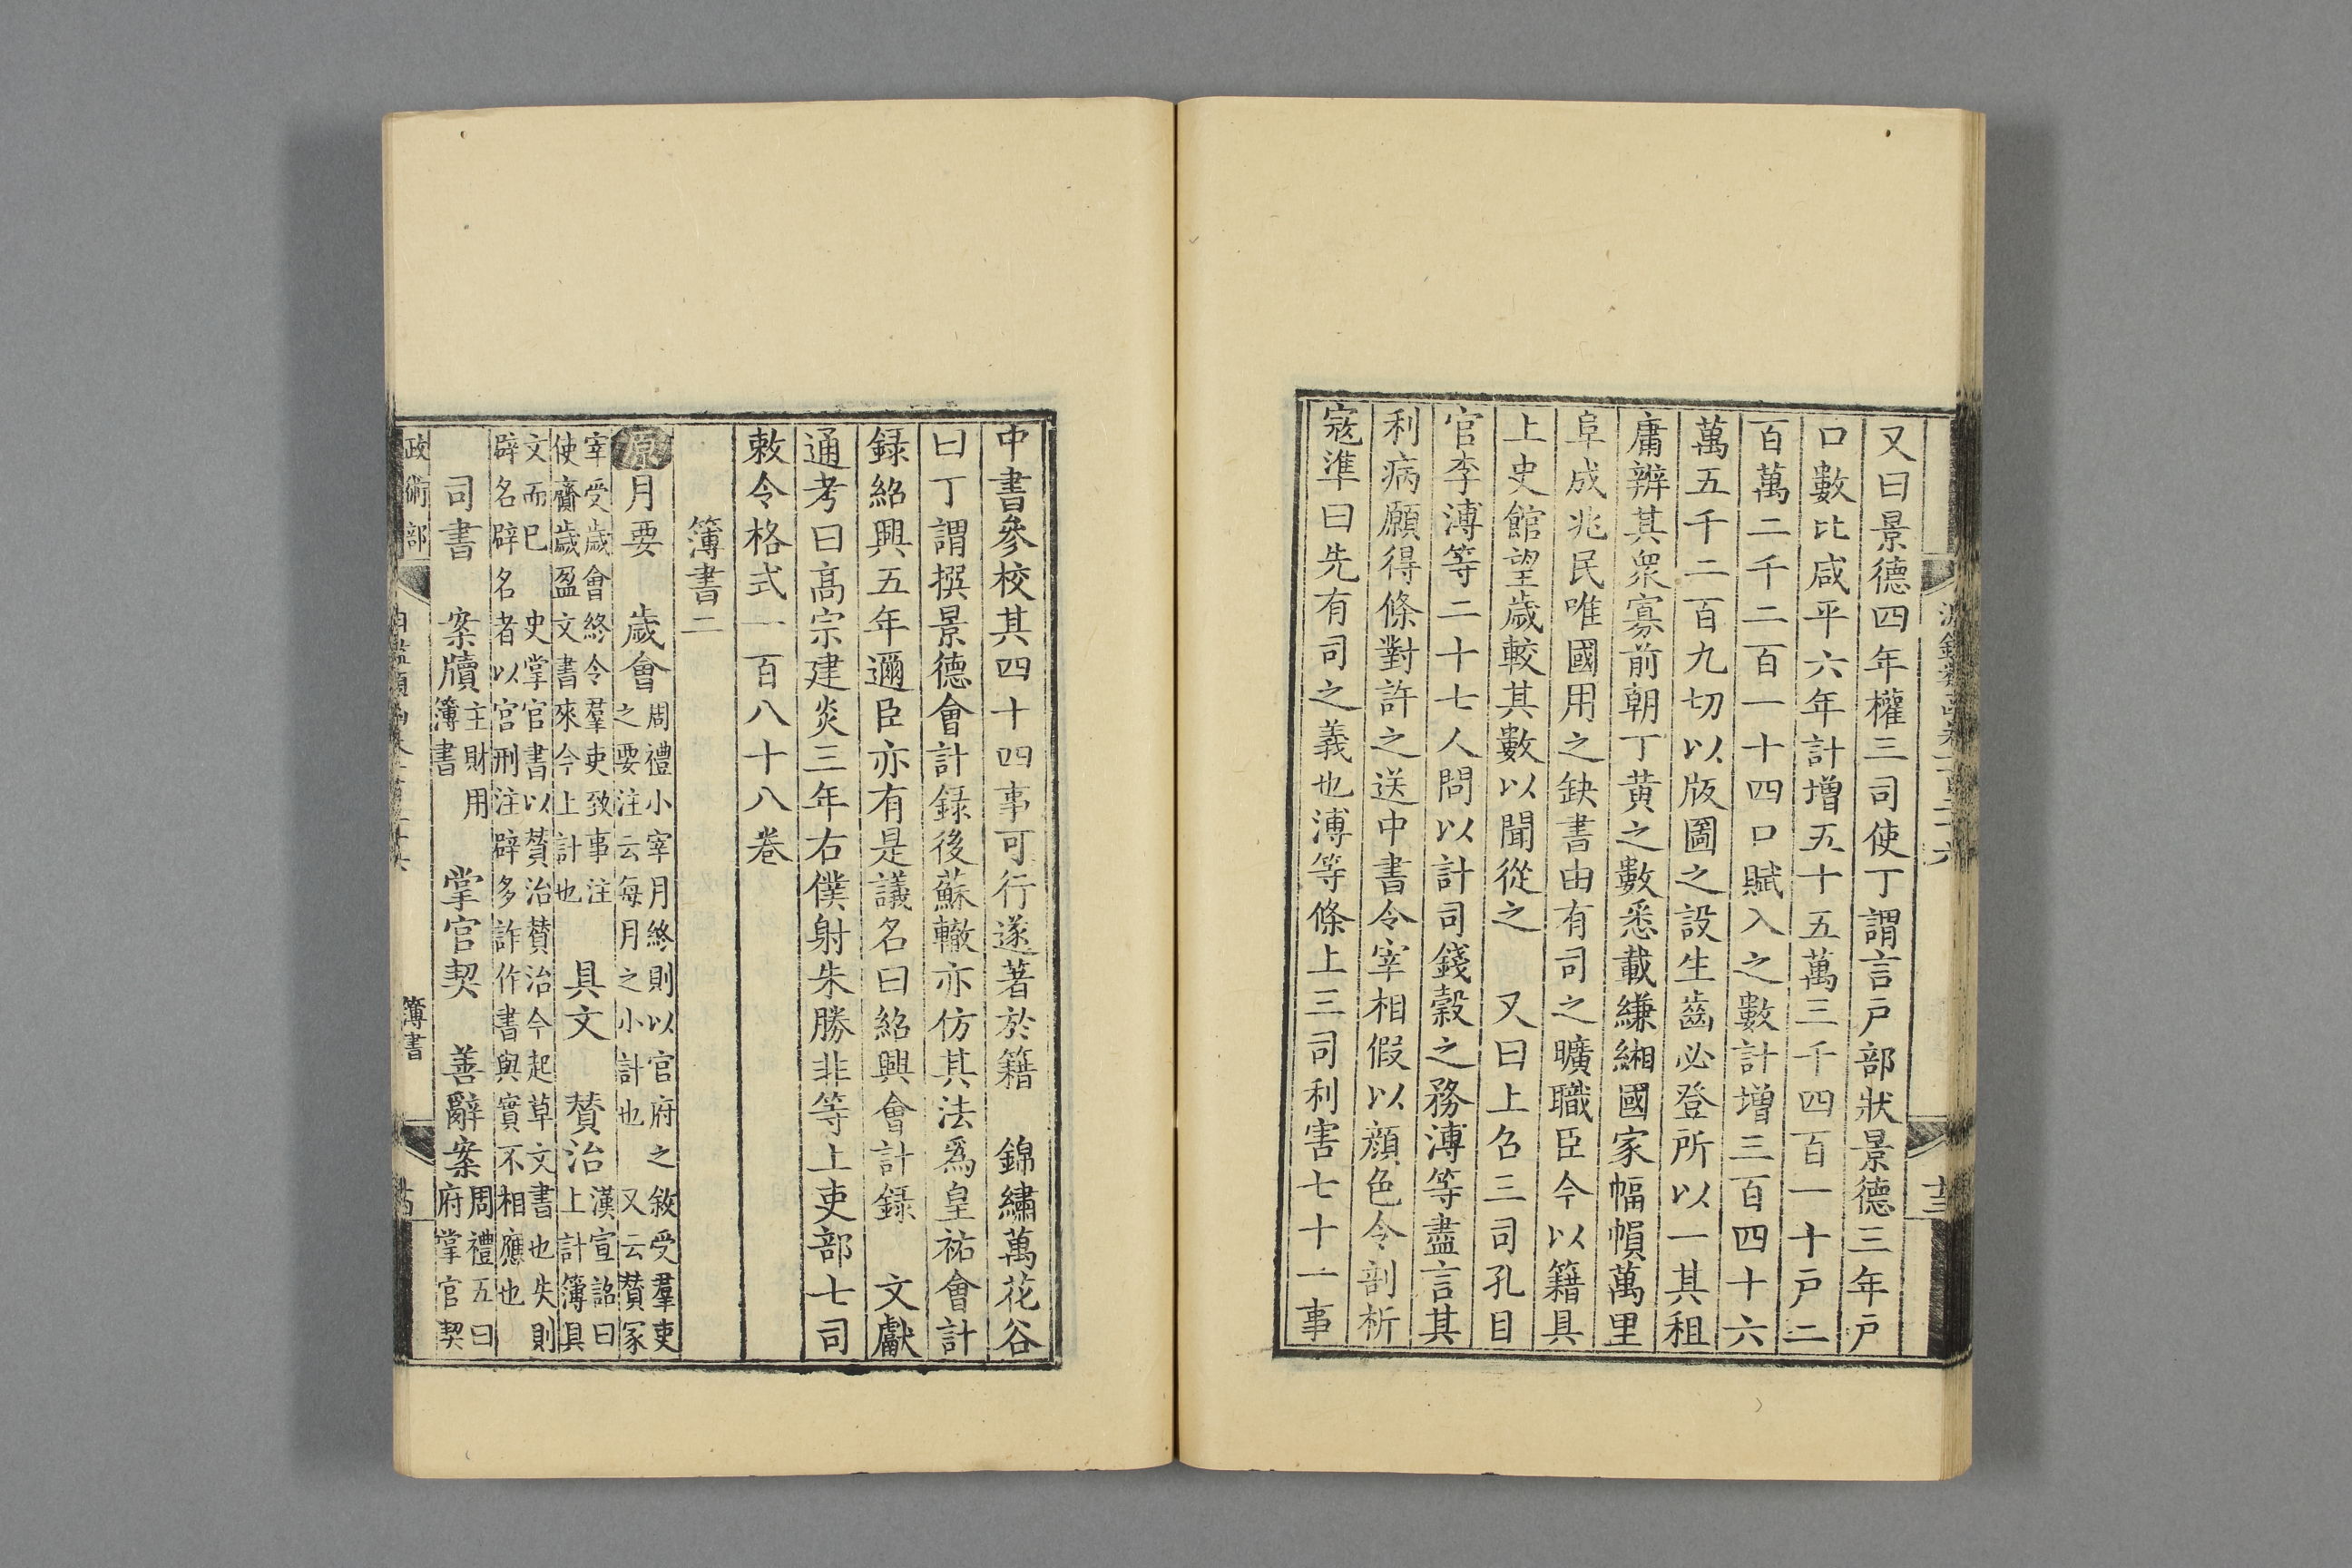 又曰景德四年權三司使丁謂言戸部狀景德三年戸
口數比咸平六年計增五十五萬三千四百一十戸二
百萬二千二百一十四口賦入之數計增三百四十六
萬五千二百九切以版圖之設生齒必登所以一其租
庸辨其衆寡前朝丁黄之數悉載縑緗國家幅幀萬里
阜成兆民唯國用之缺書由有司之曠職臣今以籍具
上史館望歲較其數以聞從之　又曰上召三司孔目
官李溥等二十七人問以計司錢穀之務溥等盡言其
利病願得條對許之送中書令宰相假以顔色令剖析
寇準曰先有司之義也溥等條上三司利害七十一事
中書參校其四十四事可行遂著於籍　錦繡萬花谷
曰丁謂撰景德會計録後蘇轍亦仿其法爲皇祐會計
録紹興五年邇臣亦有是議名曰紹興會計録　文獻
通考曰高宗建炎三年右僕射朱勝非等上吏部七司
敕令格式一百八十八卷
簿書二
原月要　歲會周禮小宰月終則以官府之敘受羣吏
之要注云每月之小計也　又云贊冢
宰受歲會終令羣吏致事注
使齎歲盈文書來今上計也　具文　贊治漢宣詔曰
上計簿具
文而已　史掌官書以贊治贊治今起草文書也失則
辟名辟名者以官刑注辟多詐作書與實不相應也
司書　案牘主財用
簿書　掌官契　善辭案周禮五曰
府掌官契
政術部
簿書